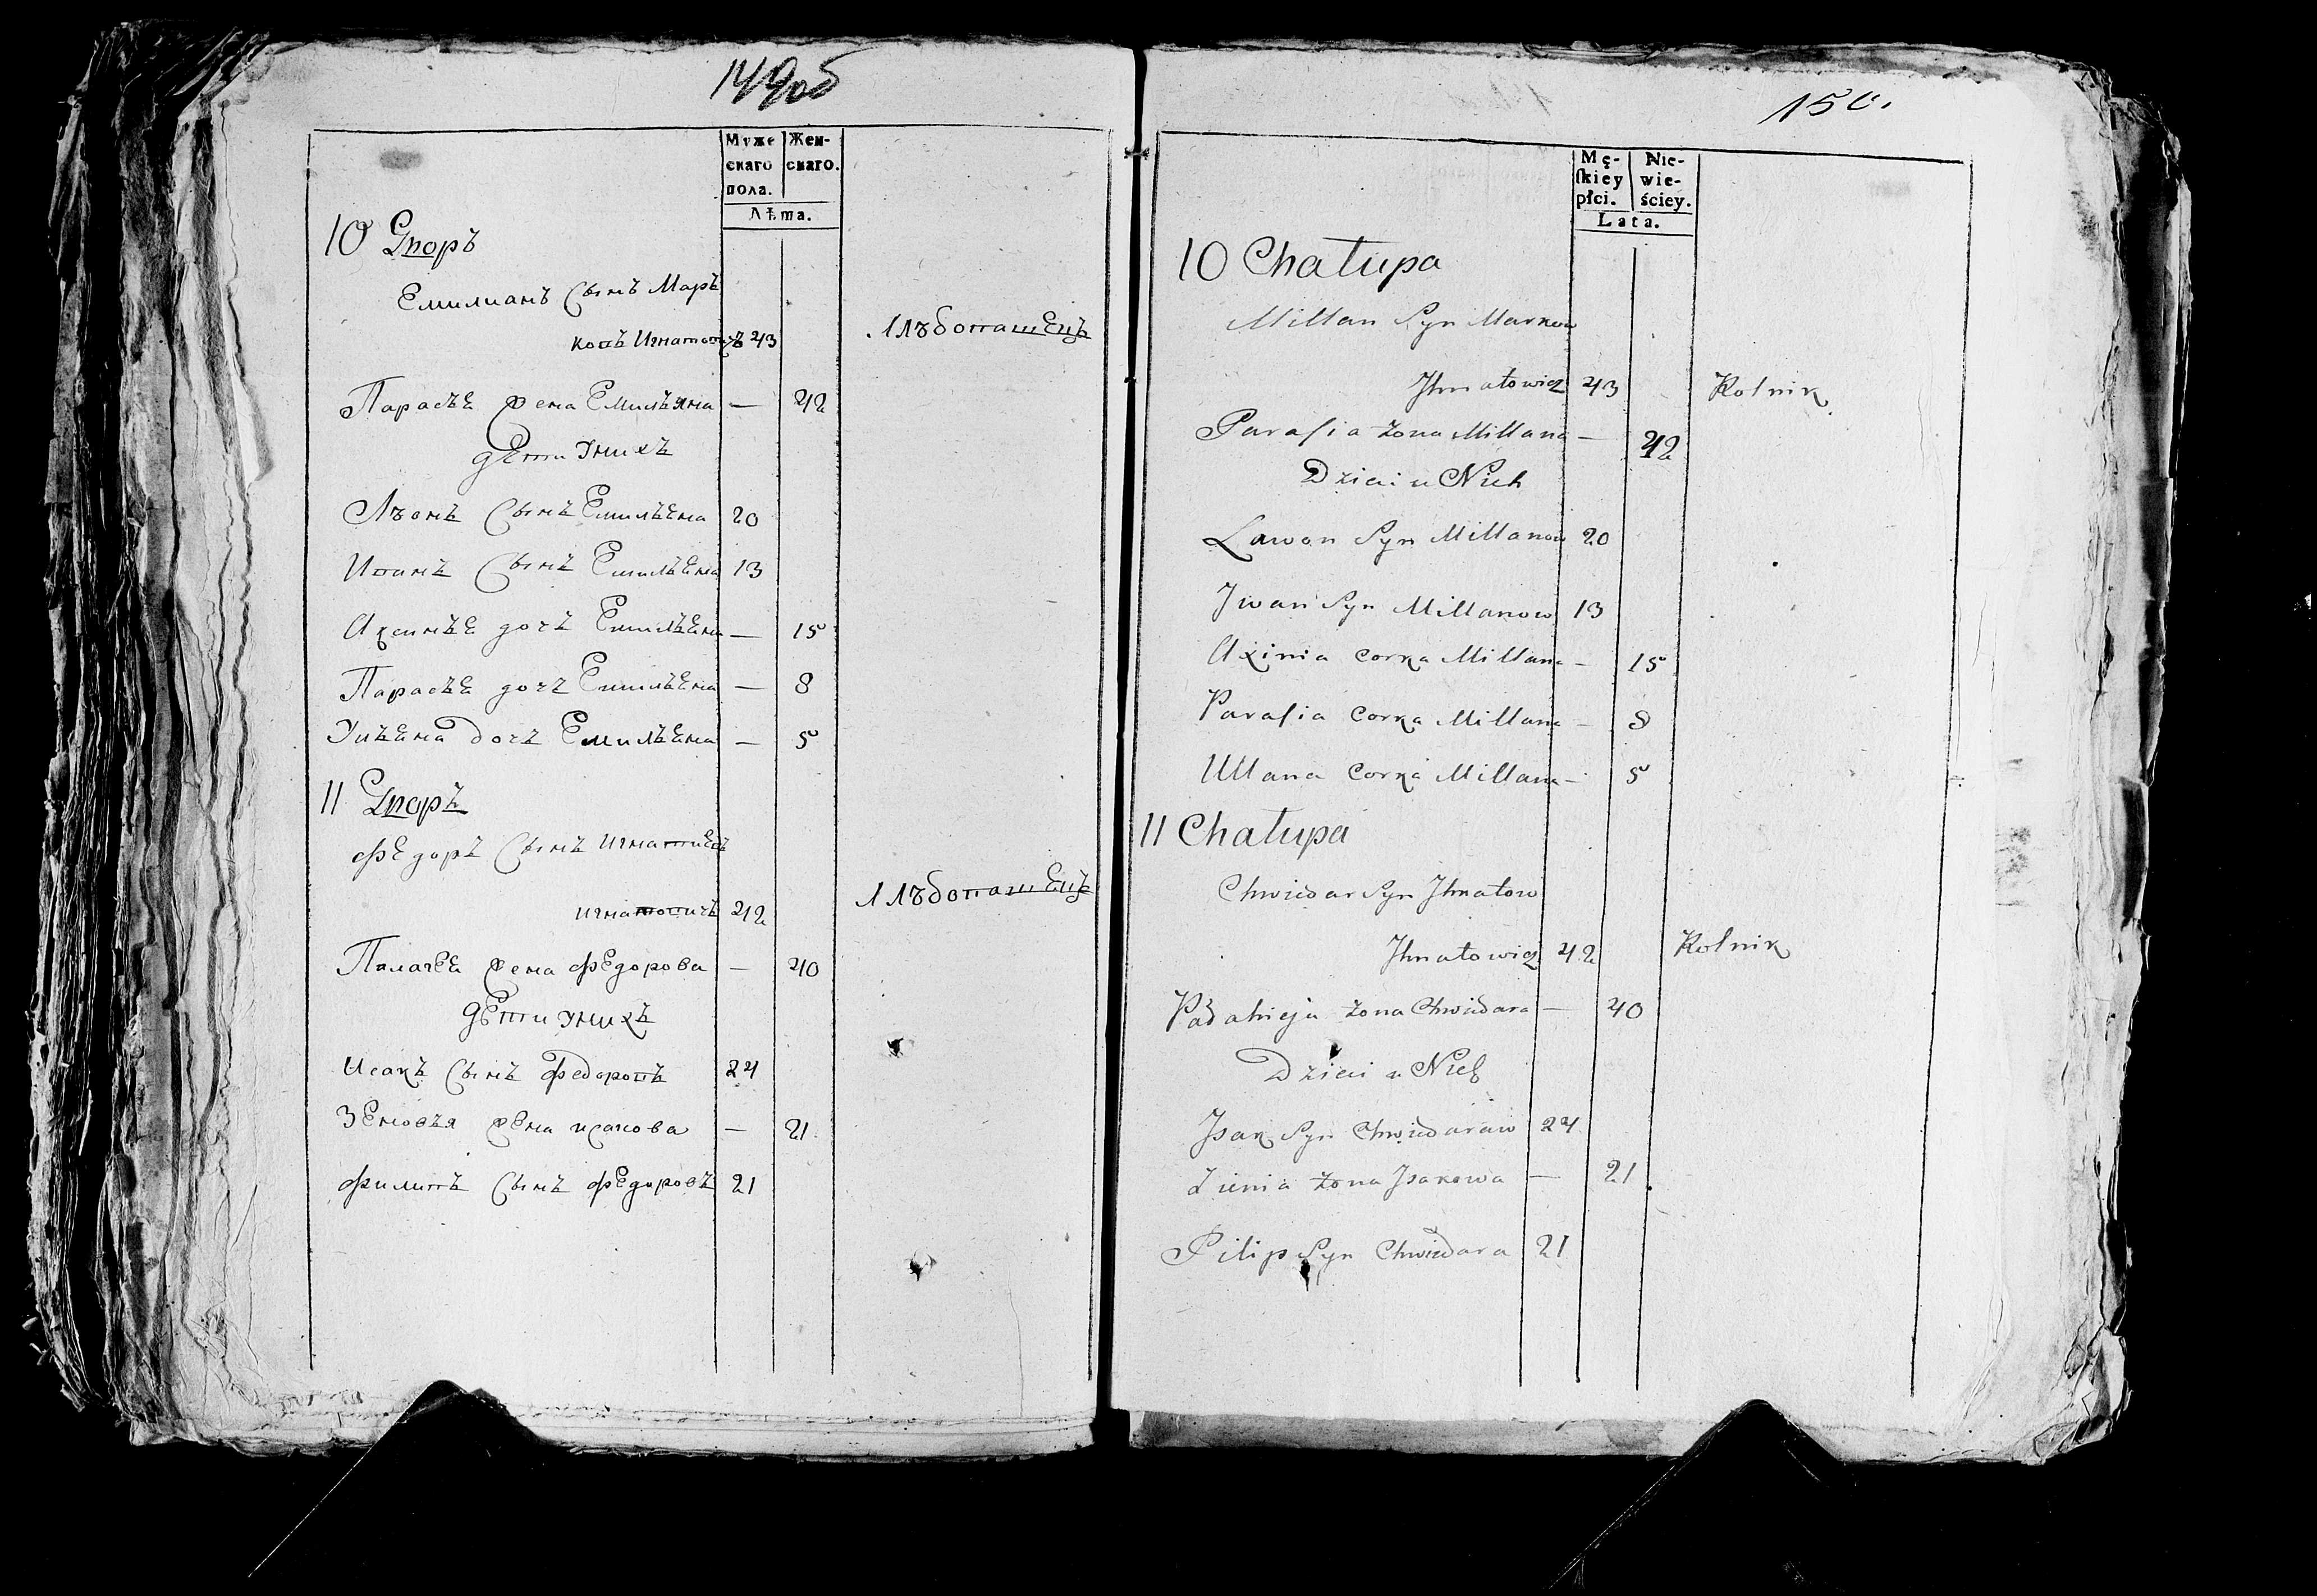 149об
Муже
скаго
пола.
Жен-
скаго.
Лѣта.
10 Дворъ
Емилианъ Сынъ Мар
ковъ Игнатовичъ 43
Хлѣбопашецъ
Парасъя жена Емильяна — 42
дети Унихъ
Лѣонъ Сынъ Емильяна 20
Иванъ Сынъ Емильяна 13
Аксинья дочъ Емильяна — 15
Парасъя дочъ Емильяна — 8
Ульяна дочъ Емильяна — 5
11 Дворъ
Федоръ Сынъ Игнатиевъ
Игнатовичъ 42
Хлѣбопашецъ
Палагея жена Федорова — 40
дети Унихъ
Исакъ Сынъ Федоровъ 24
Зеновъя жена исакова — 21
Филипъ Сынъ Федоровъ 21
150.
Mę-
ſkiey
płci.
Nie-
wie-
ściey.
Lata.
10 Chałupa
Millan Syn Markow
Ihnatowicz 43 Rolnik
Parasia żona Millana — 42
Dzieci u Nich
Lawon Syn Millanow 20
Jwan Syn Millanow 13
Axinia Corka Millana — 15
Parasia Corka Millana — 8
Ullana Corka Millana — 5
11 Chałupa
Chwiedar Syn Ihnatow
Ihnatowicz 42 Rolnik
żona Chwiedara — 40
Dzieci u Nich
Jsak Syn Chwiedaraw 24
Zienia żona Jsakowa — 21
Pilip Syn Chwiedara 21